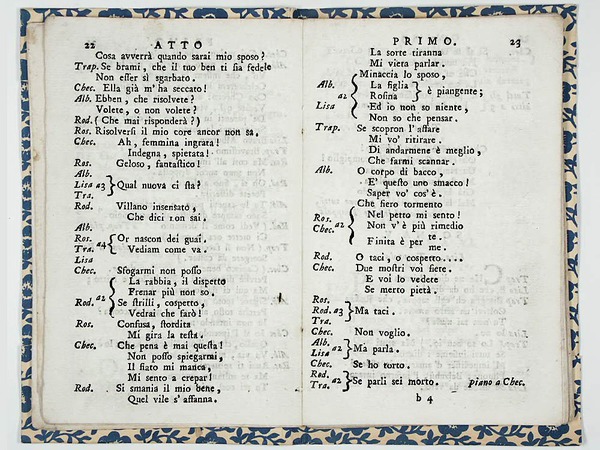 22 ATTO
Cosa avverrà quando sarai mio sposo?
Trap. Se brami, che il tuo ben ti sia fedele
Non esser sì sgarbato.
Chec. Ella già m' ha seccato!
Alb. Ebben, che risolvete?
Volete, o non volete?
Rod. (Che mai risponderà?)
Ros. Risolversi il mio core ancor non sa.
Chec. Ah, femmina ingrata!
Indegna, spietata!
Ros. Geloso, fantastico!
Alb.
Lisa a3 } Qual nuova ci sta?
Tra.
Rod. Villano insensato,
Che dici non sai.
Alb.
Ros. Or nascon dei guai.
Tra. a4 { Vediam come va.
Lisa
Chec. Sfogarmi non posso
La rabbia, il dispetto
a2 { Frenar più non so.
Rod. Se strilli, cospetto,
Vedrai che farò!
Ros. Confusa, stordita
Mi gira la testa.
Chec. Che pena è mai questa!
Non posso spiegarmi,
Il fiato mi manca,
Mi sento a crepar!
Rod. Si smania il mio bene,
Quel vile s' affanna.
PRIMO. 23
La sorte tiranna
Mi viera parlar.
Minaccia lo sposo,
Alb. La figlia } è piangente;
a2 { Rosina
Lisa Ed io non so niente,
Non so che pensar.
Trap. Se scopron l' affare
Mi vo' ritirare.
Di andarmene è meglio,
Che farmi scannar.
Alb. O corpo di bacco,
E' questo uno smacco!
Saper vo' cos' è.
Che fiero tormento
Ros. Nel petto mi sento!
Chec. a2 { Non v' è più rimedio
Finita è per te.
me.
Rod. O taci, o cospetto....
Chec. Due mostri voi siete.
E voi lo vedete
Se merto pietà.
Ros.
Rod. a3 } Ma taci.
Tra.
Chec. Non voglio.
Alb.
Lisa a2 } Ma parla.
Chec. Se ho torto.
Rod.
Tra. a2 } Se parli sei morto. piano a Chec.
b 4